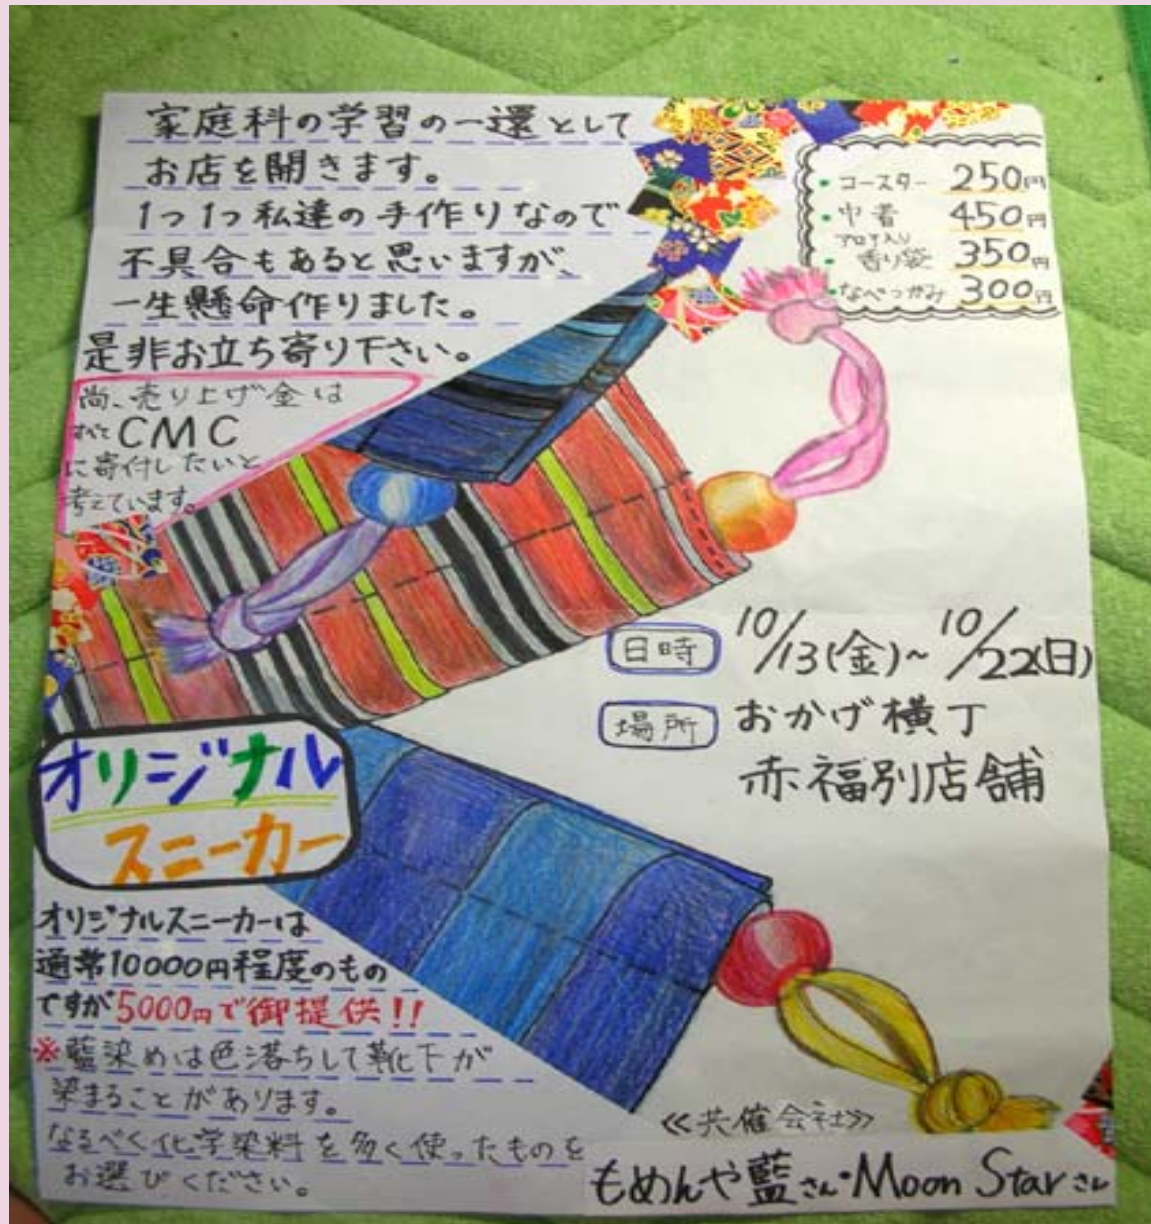 家庭科の学習の一還として
お店を開きます。
1つ1つ私達の手作りなので
不具合もあると思いますが、
一生懸命作りました。
是非お立ち寄り下さい。
尚、売り上げ金は
すべてCMC
に寄付したいと
考えています。
・コースター 250円
・巾着 450円
アロマ入り
・香り袋 350円
・なべつかみ 300円
日時 10/13(金)~10/22(日)
場所 おかげ横丁
赤福別店舗
オリジナル
スニーカー
オリジナルスニーカーは
通常10000円程度のもの
ですが5000円で御提供!!
※藍染めは色落ちして靴下が
染まることがあります。
なるべく化学染料を多く使ったものを
お選びください。
≪共催会社≫
もめんや藍さん・Moon Starさん